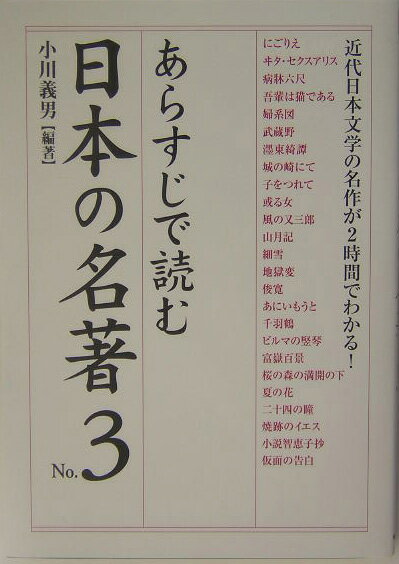 近代日本文学の名作が2時間でわかる!
にごりえ
ヰタ・セクスアリス
病牀六尺
吾輩は猫である
婦系図
武蔵野
濹東綺譚
城の崎にて
子をつれて
或る女
風の又三郎
山月記
細雪
地獄変
俊寛
あにいもうと
千羽鶴
ビルマの竪琴
富嶽百景
桜の森の満開の下
夏の花
二十四の瞳
焼跡のイエス
小説智恵子抄
仮面の告白
あらすじで読む
日本の名著 No.3
小川義男【編著】